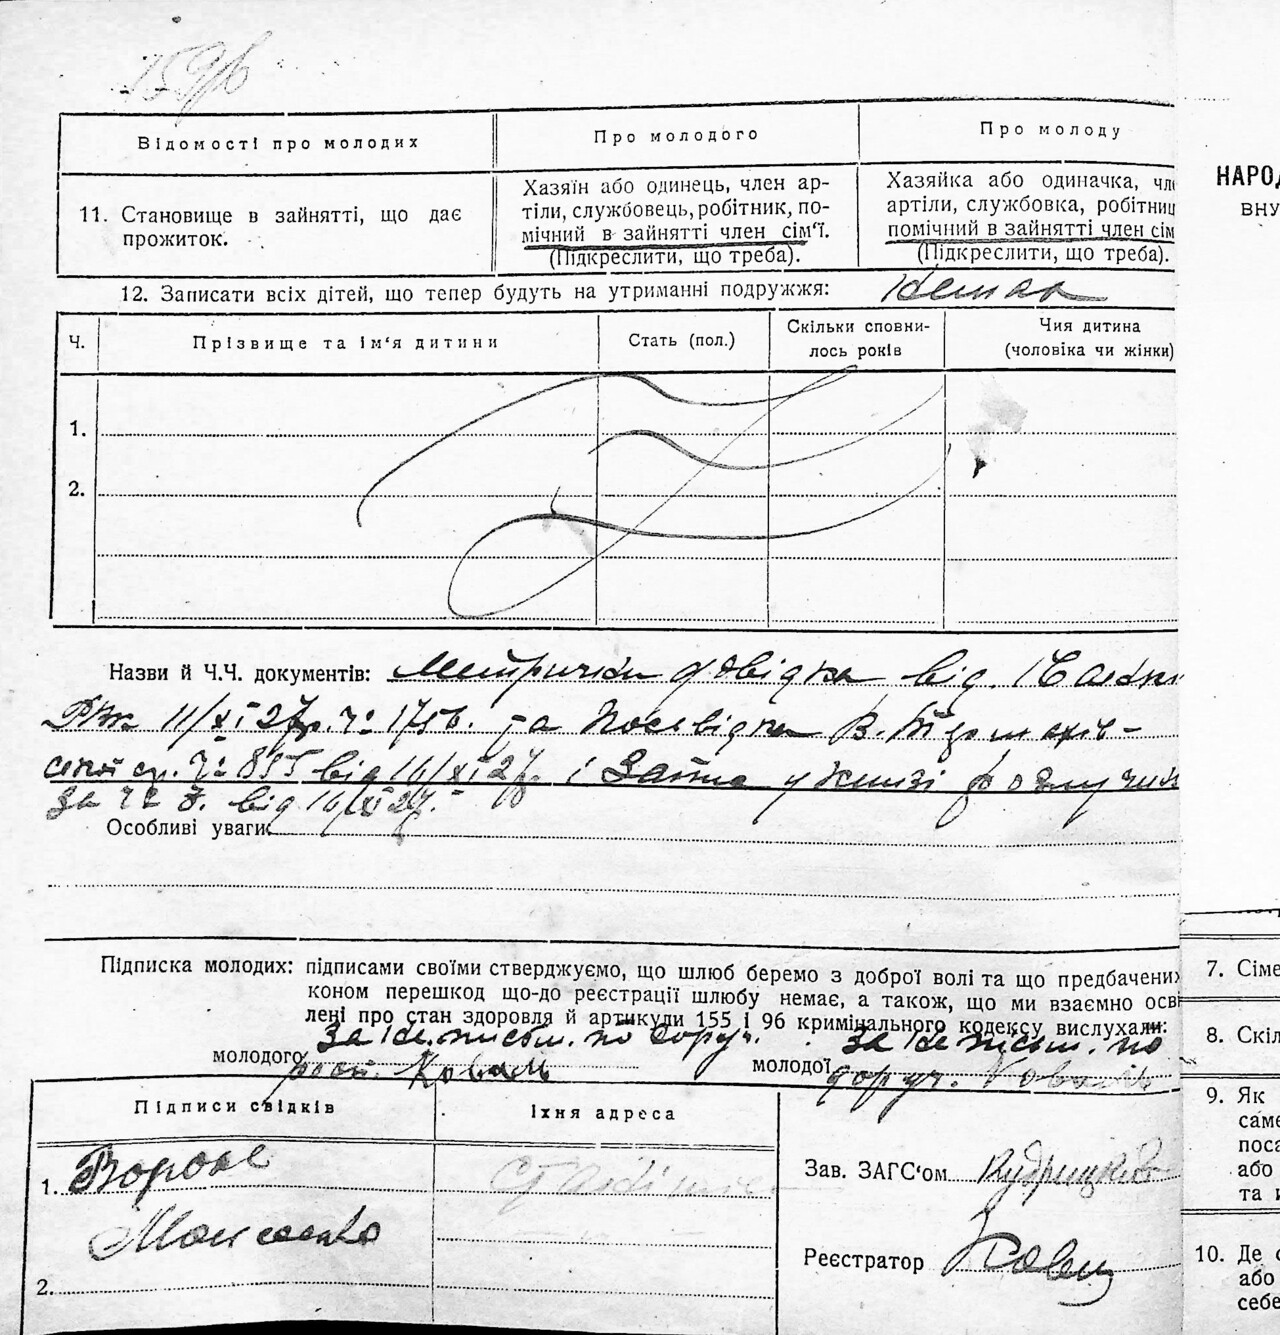 Відомості про молодих
Про молодого
Про молоду
11. Становище в зайнятті, що дає
прожиток.
Хазяїн або одинець, член ар-
тіли, службовець, робітник, по-
мічний в зайнятті член сім'ї.
(Підкреслити, що треба).
Хазяйка або одиначка, чле
артіли, службовка, робітниц
помічний в зайнятті член сім
(Підкреслити, що треба).
12. Записати всіх дітей, що тепер будуть на утриманні подружжя: Немає
Ч.
Прізвище та ім'я дитини
Стать (пол.)
Скільки сповни-
лось років
Чия дитина
(чоловіка чи жінки)
1.
2.
Назви й Ч.Ч. документів: Метрична довідка від
11/XI 27р. та посвідка В.
від 16/XI 27р. і у книзі
за від 16/XI 27р.
Особливі уваги:
Підписка молодих: підписами своїми стверджуємо, що шлюб беремо з доброї волі та що предбачених
коном перешкод що-до реєстрації шлюбу немає, а також, що ми взаємно осві
лені про стан здоровля й артикули 155 і 96 кримінального кодексу вислухали:
За не письм. по доруч.
молодого Коваль
За не письм. по
молодої доруч. Коваль
Підписи свідків
Їхня адреса
1. Ворона
2.
Зав. ЗАГС'ом
Реєстратор
НАРОД
ВНУ
7. Сіме
8. Скіл
9. Як
саме
поса
або
та и
10. Де с
або
себе